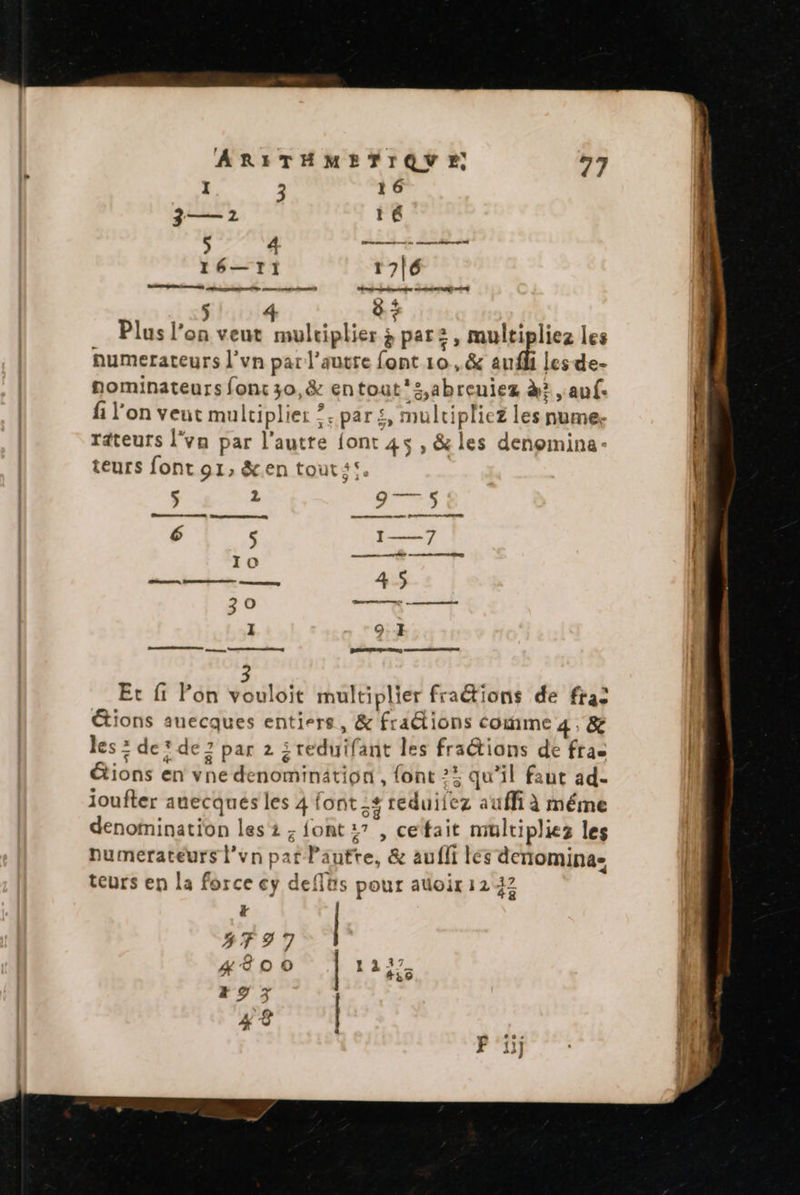 ARITHMETIQVE 77
1 3 16
3—2 16
5 4
16—11 17|6
5 4 8
Plus l'on veut multiplier par, multipliez les
numerateurs l'vn par l'autre font 10, & aussi les de-
nominateurs font 30, & en tout, abreuiez à, aus-
si l'on veut multiplier par, multipliez les nume-
rateurs l'vn par l'autre font 45, & les denomina-
teurs font 91, & en tout
5 2 9—5
6 5 1—7
10
45
30
1 91
3
Et si l'on vouloit multiplier fractions de fra-
ctions auecques entiers, & fractions comme 4. &
les de de par 2 reduisant les fractions de fra-
ctions en vne denomination, font qu'il faut ad-
iouster auecques les 4 font reduisez aussi à méme
denomination les 2 font, ce fait multipliez les
numerateurs l'vn par l'autre, & aussi les denomina-
teurs en la force cy dessus pour auoir 12
4800
193
48
F iij